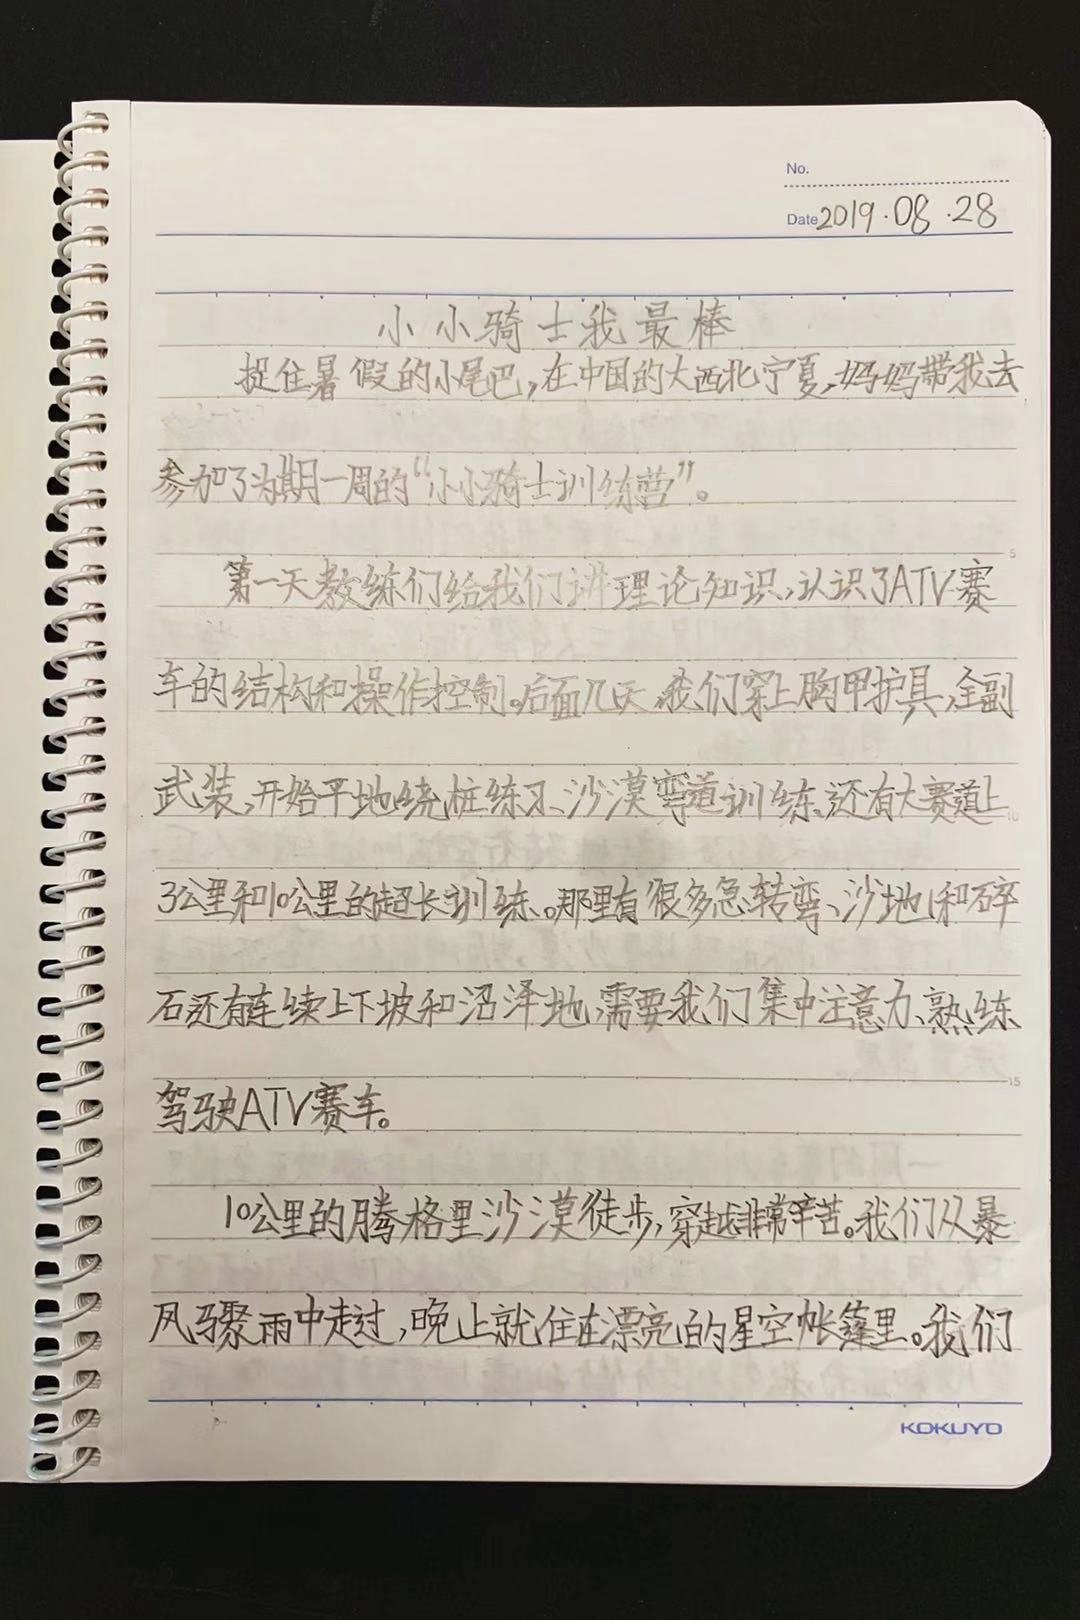 No.
Date 2019.08.28
小小骑士我最棒
捉住暑假的小尾巴,在中国的大西北宁夏,妈妈带我去
参加了为期一周的“小小骑士训练营”。
5
第一天教练们给我们讲理论知识,认识了ATV赛
车的结构和操作控制。后面几天,我们穿上胸甲护具,全副
武装,开始平地绕桩练习、沙漠弯道训练、还有大赛道上
10
3公里和10公里的超长训练。那里有很多急转弯、沙地和碎
石还有连续上下坡和沼泽地,需要我们集中注意力、熟练
15
驾驶ATV赛车。
10公里的腾格里沙漠徒步,穿越非常辛苦。我们从暴
风骤雨中走过,晚上就住在漂亮的星空帐篷里。我们
KOKUYO